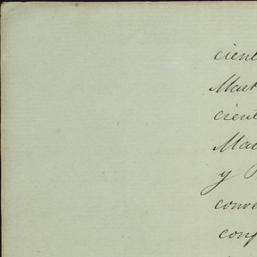 cient
Mart
cient
Ma
y
conve
conf